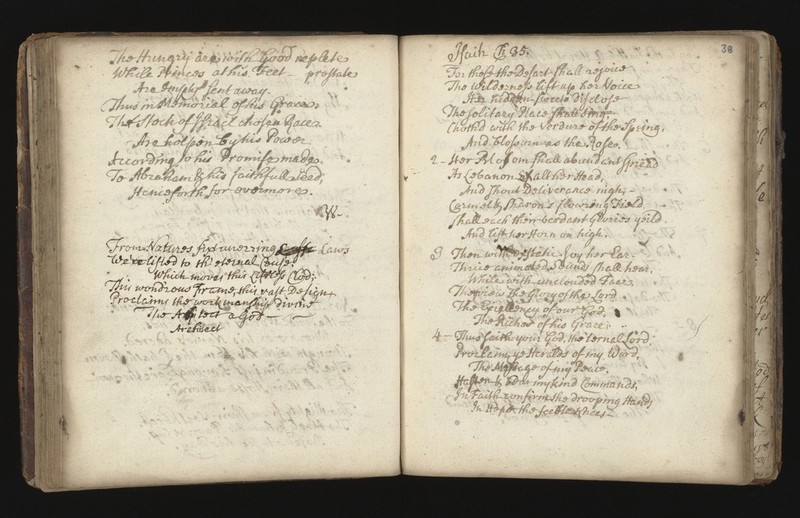 The Hungry are with Good replete
While Princes at his Feet – prostate
Are empty sent away.
Thus in Memorial of his Grace
The Stock of Israel chosen Race
Are holpen by his Power
According to his Promise made
To Abraham & his faithfull seed,
Henceforth for evermore.
38-
From Natures fixt unerring Laws
We're lifted to th' eternal Cause
Which moves this Lifeless Clod;
This wondrous Frame, this vast Design
Proclaims the workmanship divine
The a God
Architect
38
Isaih Ch 35.
For those the Desart shall rejoice
The Wilderness lift up her Voice
Her hidden Sweets disclose
The solitary Place shall sing
Cloath'd with the Verdure of the Spring,
And blossom as the Rose.
2 - Her Blossom shall abundant Spread
As Lebanon Exalt her Head,
And Shout Deliverance nigh,
Carmel & Sharon's flowring Field
Shall each their verdant Glories yeild
And lift her Horn on high.
3 Then with Extatic Joy her Ear
Thrice animated Sound shall hear,
While with unclouded Face
They view the Glory of the Lord
The Excellency of our God,
The Riches of his Grace
4- Thus saith your God, the ternal Lord
Proclaim, ye Heralds of my Word,
The Message of my Peace,
Hasten & hear my kind Commands,
In Faith confirm the drooping Hands
In Hope the feeble Knees-